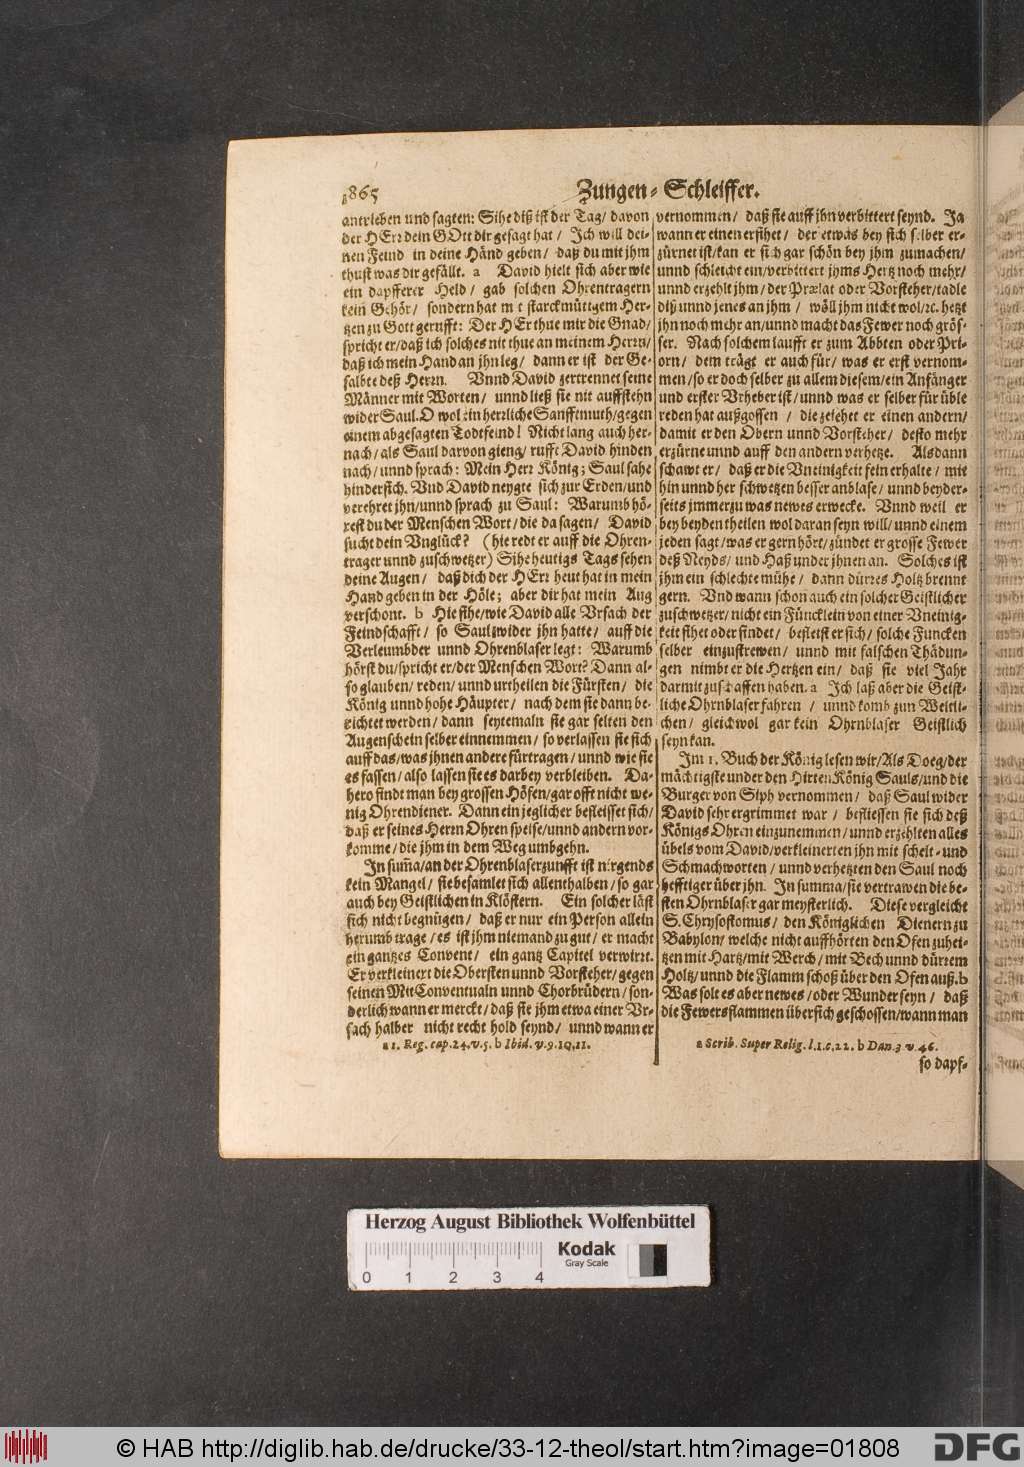 865
Zungen-Schleiffer.
antrieben und sagten: Sihe diß ist der Tag/ davon
der HErr dein GOtt dir gesagt hat/ Ich will dei-
nen Feind in deine Händ geben/ daß du mit jhm
thust was dir gefällt. a David hielt sich aber wie
ein dapfferer Held/ gab solchen Ohrentragern
kein Gehör/ sondern hat mit starckmütigem Her-
tzen zu Gott gerufft: Der HErr thue mir die Gnad/
spricht er/ daß ich solches nit thue an meinem Herrn/
daß ich mein Hand an jhn leg/ dann er ist der Ge-
salbte deß Herrn. Vnnd David zertrennet seine
Männer mit Worten/ unnd ließ sie nit auffstehn
wider Saul. O wol ein herzliche Sanfftmuth/ gegen
einem abgesagten Todtfeind! Nicht lang auch her-
nach/ als Saul darvon gieng/ rufft David hinden
nach/ unnd sprach: Mein Herr König; Saul sahe
hindersich. Vnd David neygte sich zur Erden/ und
verehret jhn/ unnd sprach zu Saul: Warumb hö-
rest du der Menschen Wort/ die da sagen/ David
sucht dein Vnglück? (hie redt er auff die Ohren-
trager unnd zuschwetzer) Sihe heutigs Tags sehen
deine Augen/ daß dich der HErr heut hat in mein
Hand geben in der Höle; aber dir hat mein Aug
verschont. b Hie sihe/ wie David alle Vrsach der
Feindschafft/ so Saul wider jhn hatte/ auff die
Verleumbder unnd Ohrenblaser legt: Warumb
hörst du/ spricht er/ der Menschen Wort? Dann al-
so glauben/ reden/ unnd urtheilen die Fürsten/ die
König unnd hohe Häupter/ nach dem sie dann be-
richtet werden/ dann seytemaln sie gar selten den
Augenschein selber einnemmen/ so verlassen sie sich
auff das/ was jhnen andere fürtragen/ unnd wie sie
es fassen/ also lassen sie es darbey verbleiben. Da-
hero findt man bey grossen Höfen/ gar offt nicht we-
nig Ohrendiener. Dann ein jeglicher befleisset sich/
daß er seines Herrn Ohren speise/ unnd andern vor-
komme/ die jhm in dem Weg umbgehn.
In suma/ an der Ohrenblaserzunfft ist nirgends
kein Mangel/ sie besamlet sich allenthalben/ so gar
auch bey Geistlichen in Klöstern. Ein solcher läst
sich nicht begnügen/ daß er nur ein Person allein
herumb trage/ es ist jhm niemand zu gut/ er macht
ein gantzes Convent/ ein gantz Capitel verwirrt.
Er verkleinert die Obersten unnd Vorsteher/ gegen
seinen MitConventualn unnd Chorbrüdern/ son-
derlich wann er merckt/ daß sie jhm etwa einer Vr-
sach halber nicht recht hold seynd/ unnd wann er
a 1. Reg. cap. 24. v. 5. b Ibid. v. 9. 10, 11.
vernommen/ daß sie auff jhn verbittert seynd. Ja
wann er einen ersihet/ der etwas bey sich selber er-
zürnet ist/ kan er sich gar schön bey jhm zumachen/
unnd schleicht ein/ verbittert jhms Hertz noch mehr/
unnd erzehlt jhm/ der Prælat oder Vorsteher/ tadle
diß unnd jenes an jhm/ wöll jhm nicht wol/ ꝛc. hetzt
jhn noch mehr an/ unnd macht das Fewer noch grös-
ser. Nach solchem laufft er zum Abbten oder Pri-
orn/ dem trägt er auch für/ was er erst vernom-
men/ so er doch selber zu allem diesem/ ein Anfänger
und erster Vrheber ist/ unnd was er selber für üble
reden hat außgossen/ die zeihet er einen andern/
damit er den Obern unnd Vorsteher/ desto mehr
erzürne unnd auff den andern verhetze. Alsdann
schawt er/ daß er die Vneinigkeit fein erhalte/ mit
hin unnd her schwetzen besser anblase/ unnd beyder-
seits jmmerzu was newes erwecke. Vnnd weil er
bey beyden theilen wol daran seyn will/ unnd einem
jeden sagt/ was er gern hört/ zündet er grosse Fewer
deß Neyds/ und Haß under jhnen an. Solches ist
jhm ein schlechte mühe/ dann dürres Holtz brennt
gern. Vnd wann schon auch ein solcher Geistlicher
zuschwetzer/ nicht ein Füncklein von einer Vneinig-
keit sihet oder findet/ befleist er sich/ solche Funcken
selber einzustrewen/ unnd mit falschen Thädun-
gen nimbt er die Hertzen ein/ daß sie viel Jahr
darmit zuschaffen haben. a Ich laß aber die Geist-
liche Ohrnblaser fahren/ unnd komb zun Weltli-
chen/ gleichwol gar kein Ohrnblaser Geistlich
seyn kan.
Im 1. Buch der König lesen wir/ Als Doeg/ der
mächtigste under den Hirten König Sauls/ und die
Burger von Siph vernommen/ daß Saul wider
David sehr ergrimmet war/ befliessen sie sich deß
Königs Ohren einzunemmen/ unnd erzehlten alles
übels vom David/ verkleinerten jhn mit schelt- und
Schmachworten/ unnd verhetzten den Saul noch
hefftiger über jhn. In summa/ sie vertrawen die be-
sten Ohrnblaser gar meysterlich. Diese vergleicht
S. Chrysostomus/ den Königlichen Dienern zu
Babylon/ welche nicht auffhörten den Ofen zuhei-
tzen mit Hartz/ mit Werch/ mit Bech unnd dürrem
Holtz/ unnd die Flamm schoß über den Ofen auß. b
Was solt es aber newes/ oder Wunder seyn/ daß
die Fewersflammen übersich geschossen/ wann man
a Scrib. Super Relig. l. 1. c. 22. b Dan. 3. v. 46.
so dapf-
Herzog August Bibliothek Wolfenbüttel
Kodak
Gray Scale
0 1 2 3 4
© HAB http://diglib.hab.de/drucke/33-12-theol/start.htm?image=01808
DFG